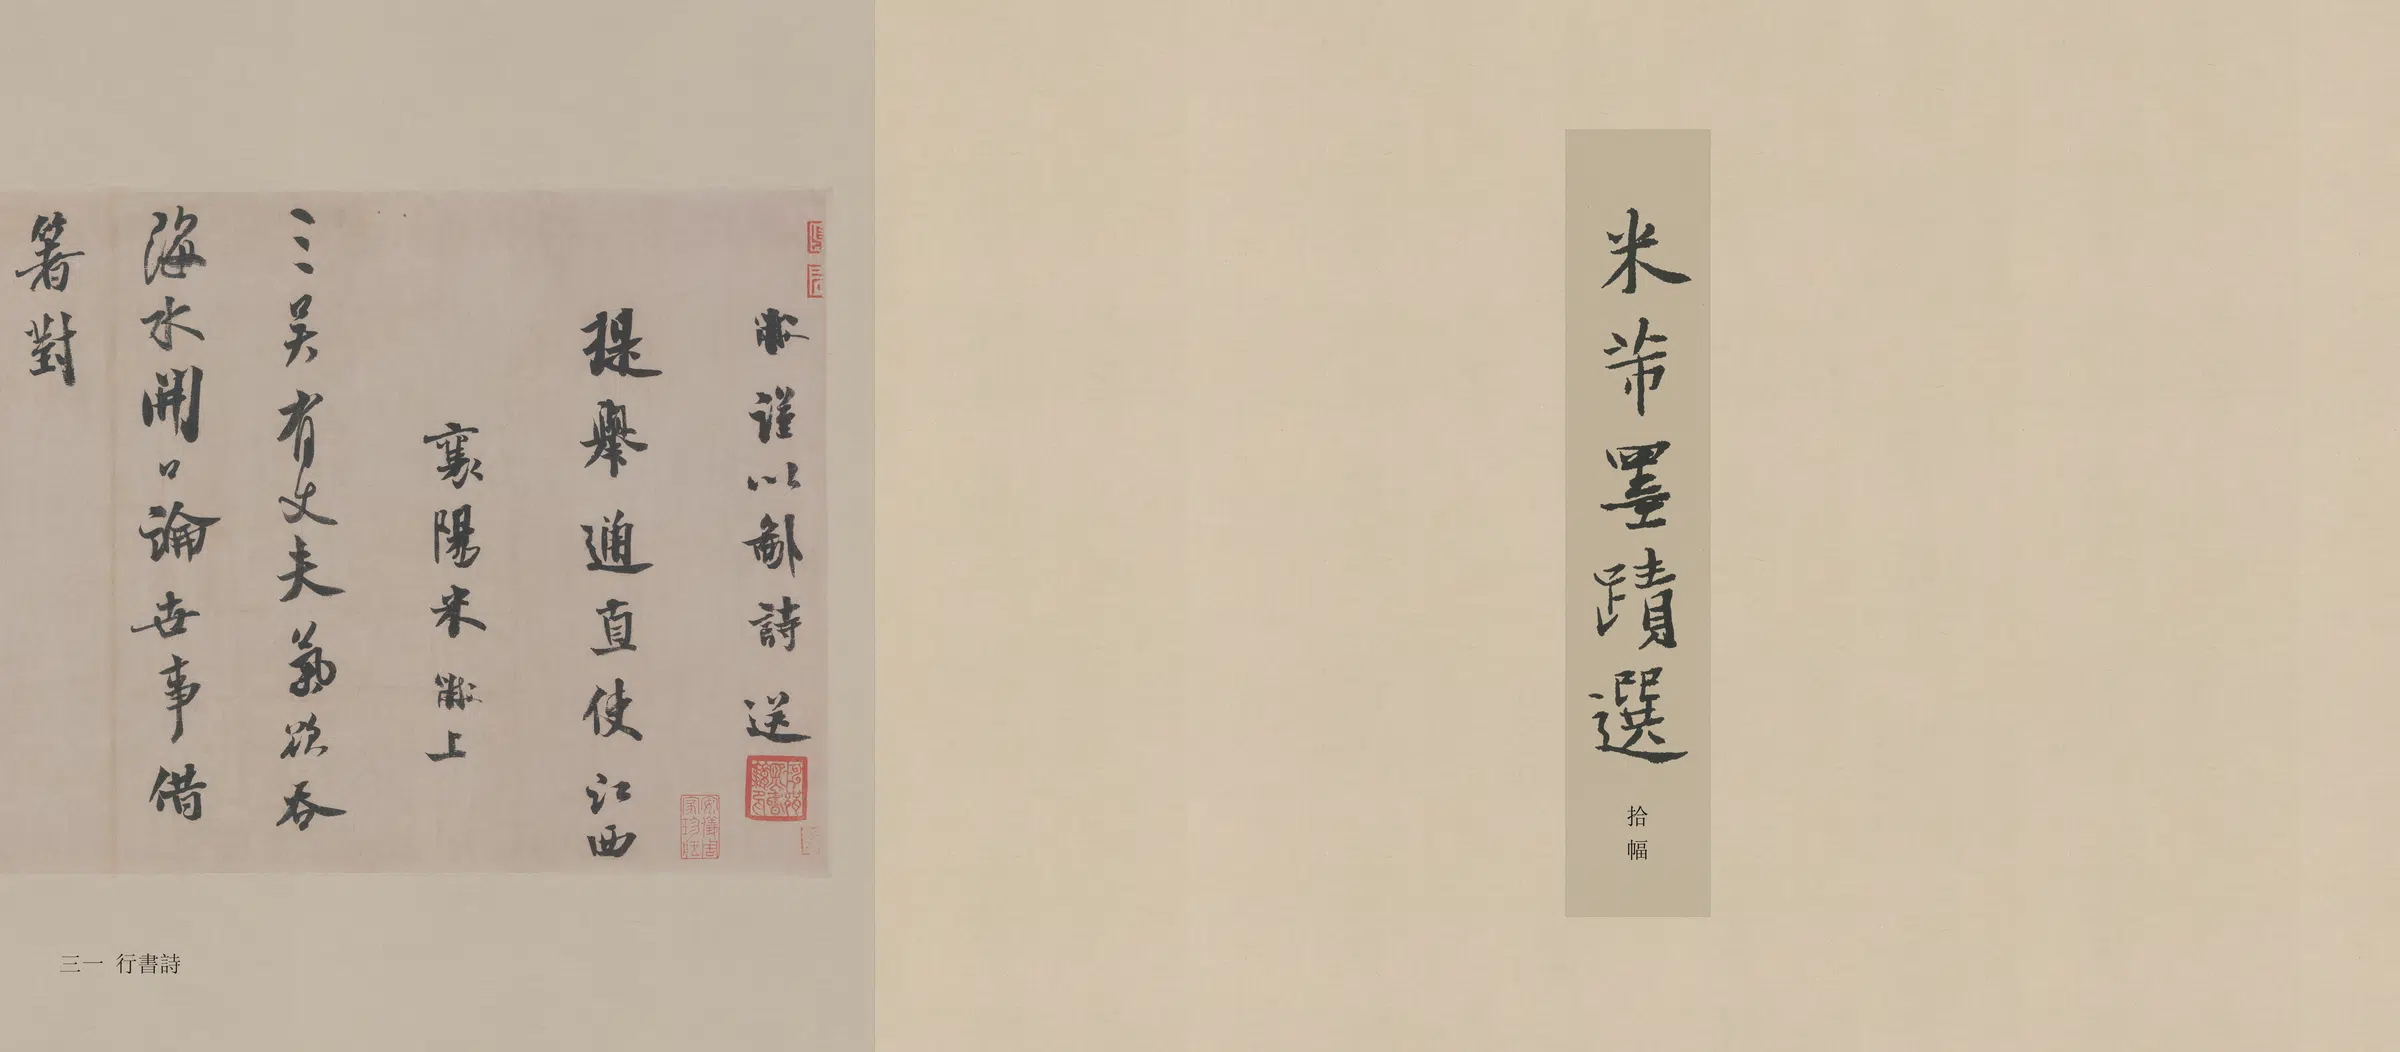 米芾墨蹟選
拾幅
黻謹以鄙詩送
提舉通直使江西
襄陽米黻上
三吳有丈夫氣欲吞
海水開口論世事借
箸對
安儀周
家珍藏
三一 行書詩